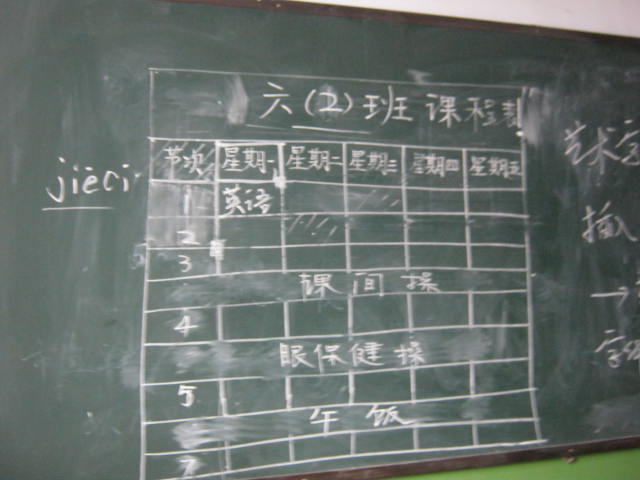 六(2)班 课程表
jiēci
节次 星期一 星期二 星期三 星期四 星期五
1 英语
2
3
课间操
4
眼保健操
5
午饭
7
艺术字
插入
→